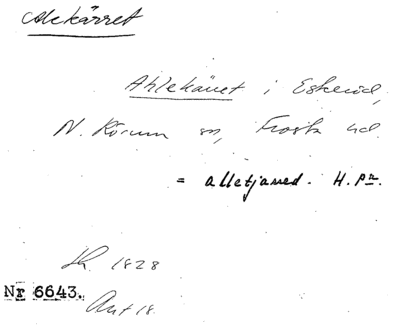 Alekärret
Ahlekärret i Eskeröd,
N. Rörum sn, Frosta hd.
= alletjarred. H. pn.
1828
Nr 6643. Akt 18.